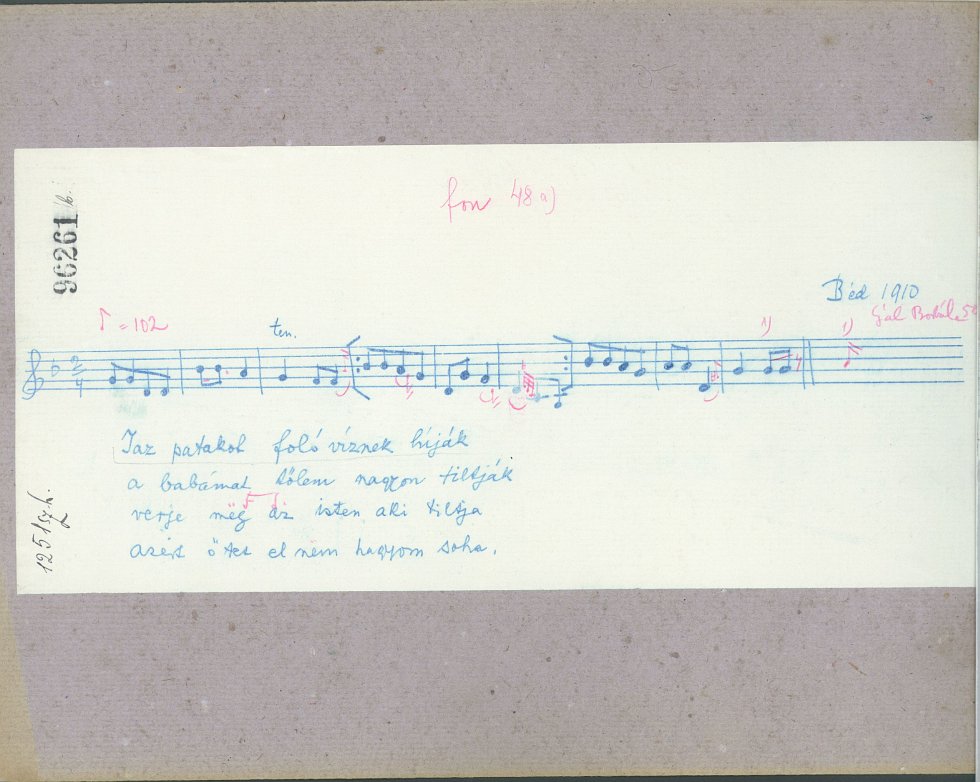 fon 48 a)
96261 b.
Béd 1910
Gál Borbála 5
♪ = 102
ten.
1) 1)
2
4
Iaz patakot foló víznek híják
a babámat tőlem nagyon tiltják
verje még áz isten aki tiltja
azért ötet el nem hagyom soha.